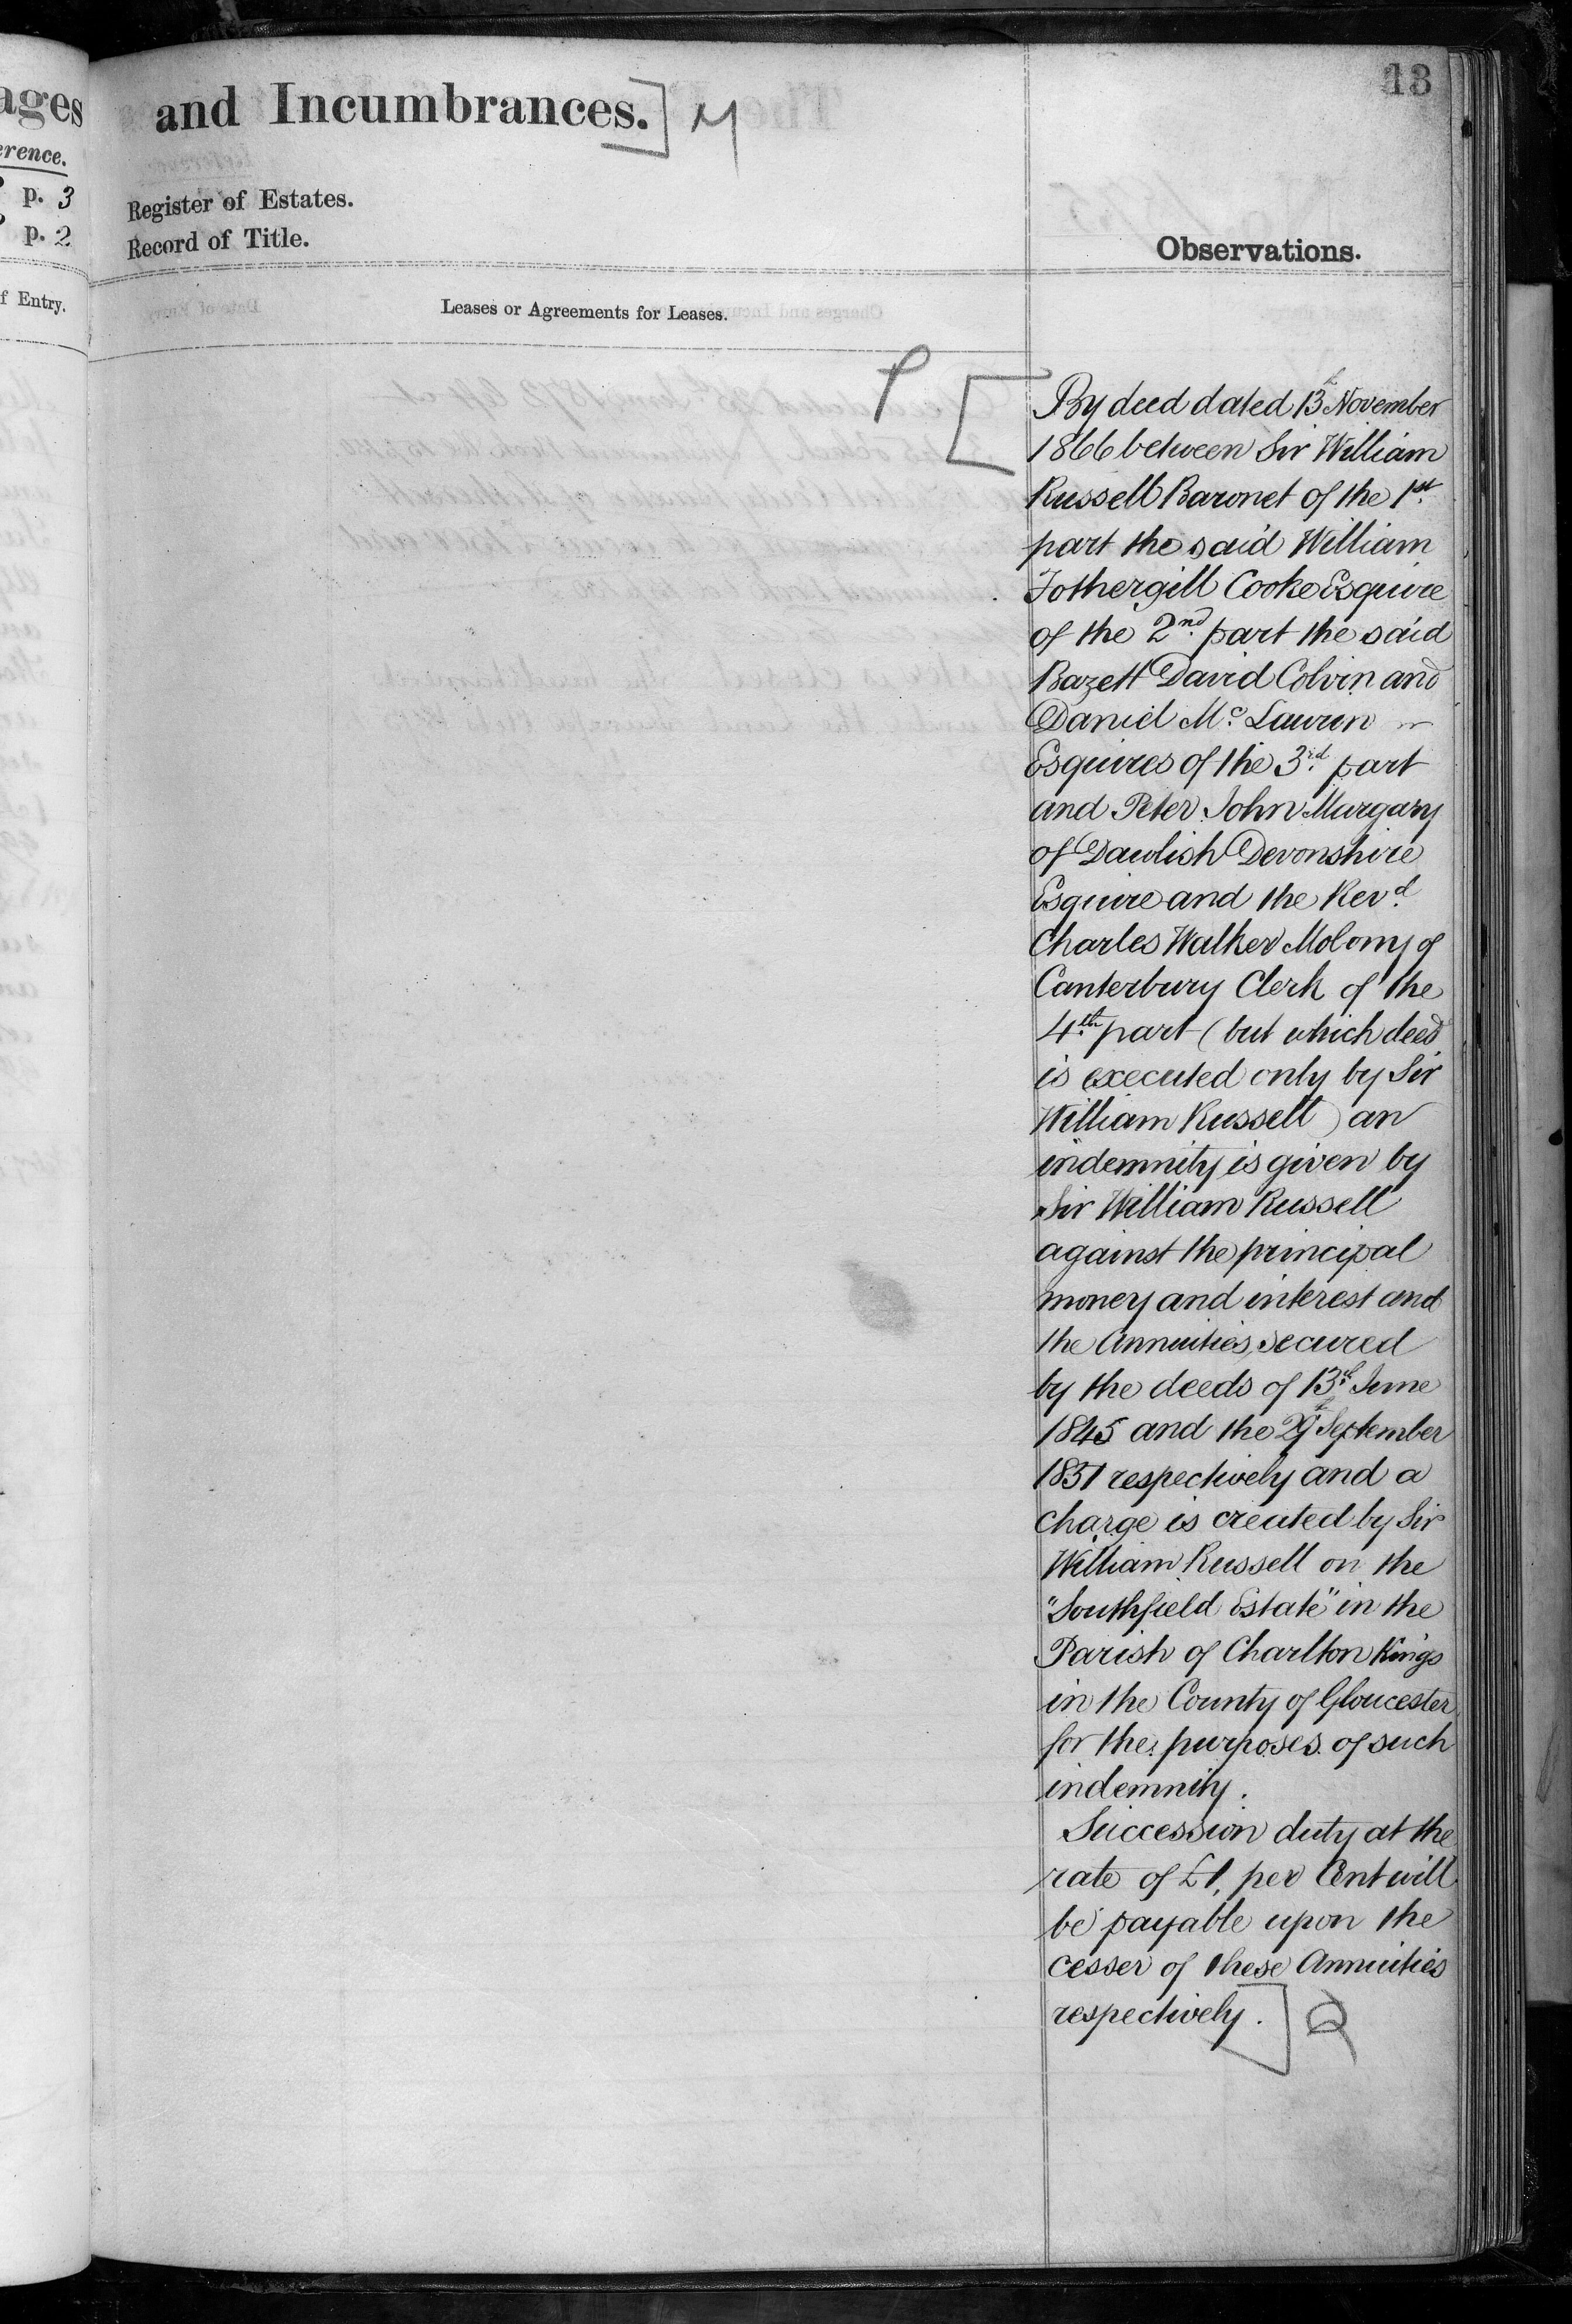 13
and Incumbrances.] M
Register of Estates.
Record of Title.
Observations.
Leases or Agreements for Leases.
ages
erence.
p. 3
p. 2
f Entry.
P [
By deed dated 13th November
1866 between Sir William
Russell Baronet of the 1st
part the said William
Fothergill Cooke Esquire
of the 2nd part the said
Bazett David Colvin and
Daniel Mc Laurin
Esquires of the 3rd part
and Peter John Margary
of Dawlish Devonshire
Esquire and the Revd
Charles Walker Molony of
Canterbury Clerk of the
4th part (but which deed
is executed only by Sir
William Russell) an
indemnity is given by
Sir William Russell
against the principal
money and interest and
the Annuities secured
by the deeds of 13th June
1845 and the 29th September
1851 respectively and a
charge is created by Sir
William Russell on the
"Southfield Estate" in the
Parish of Charlton Kings
in the County of Gloucester
for the purposes of such
indemnity.
Succession duty at the
rate of £1, per Cent will
be payable upon the
cesser of these Annuities
respectively.] Q